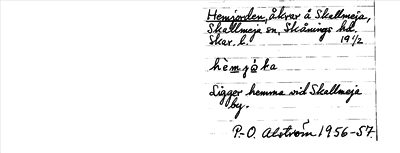 Hemjorden, åkrar å Skallmeja,
Skallmeja sn, Skånings hd.
Skar. l. 19 1/2
Ligger hemma vid Skallmeja
by.
P.-O. Alström 1956-57.